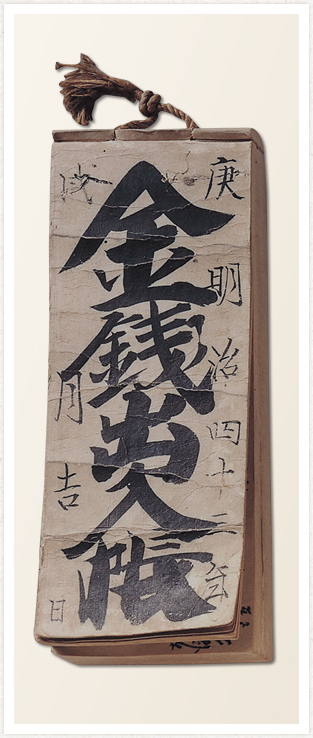 庚 明治四十三年
金銭出入帳
戌 月吉日